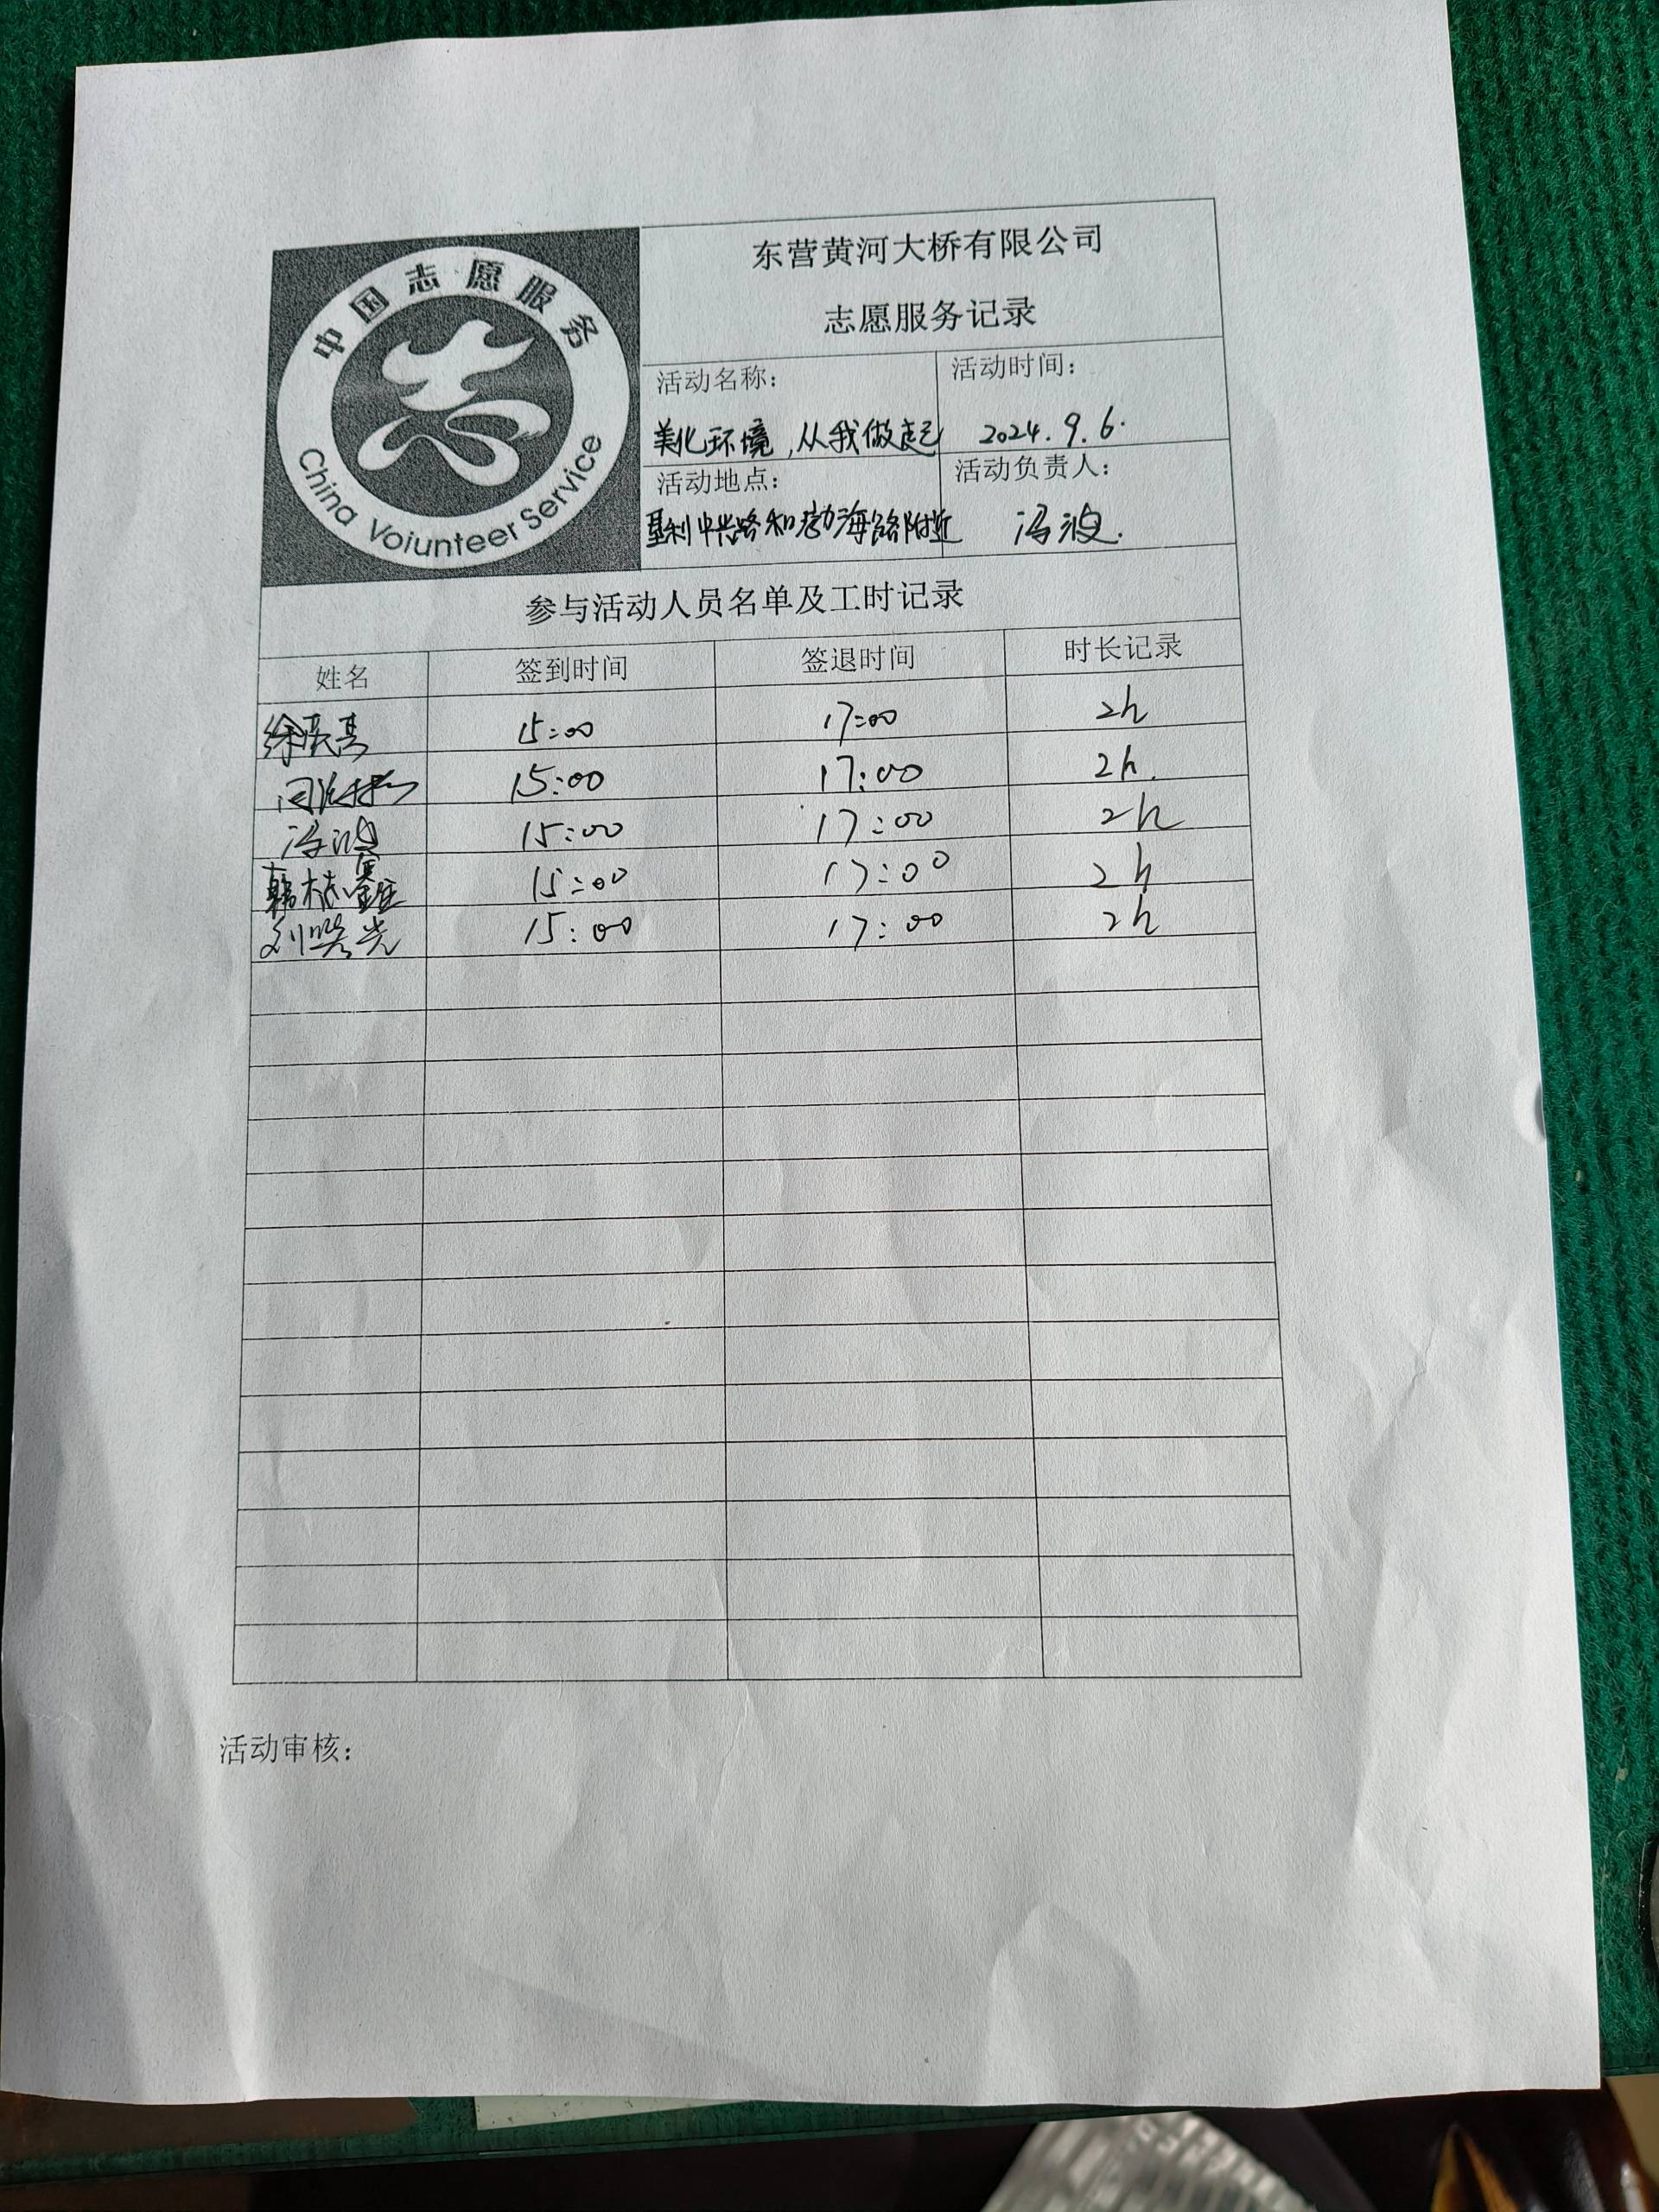 中国志愿服务
China Voiunteer Service
东营黄河大桥有限公司
志愿服务记录
活动名称：
活动时间：
美化环境，从我做起
2024.9.6.
活动地点：
活动负责人：
垦利中兴路和渤海路附近
冯波.
参与活动人员名单及工时记录
姓名 签到时间 签退时间 时长记录
15:00 17:00 2h
15:00 17:00 2h.
15:00 17:00 2h
15:00 17:00 2h
15:00 17:00 2h
活动审核：